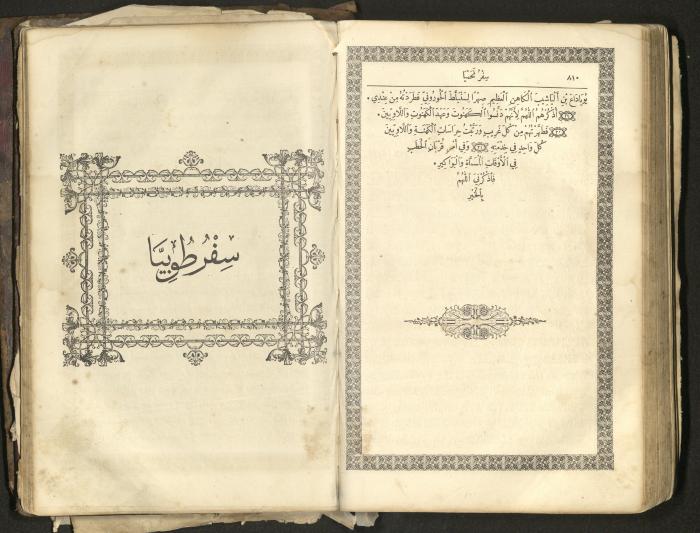 ٨١٠ سِفْرُ نَحَمْيَا
يُويَادَاعَ بْنِ أَلْيَاشِيبَ الْكَاهِنِ الْعَظِيمِ صِهْرًا لِسَنْبَلَّطَ الْحُورُونِيِّ فَطَرَدْتُهُ مِنْ عِنْدِي.
أُذْكُرْهُمُ اللّٰهُمَّ لِأَنَّهُمْ دَنَّسُوا الْكَهَنُوتَ وَعَهْدَ الْكَهَنُوتِ وَاللَّاوِيِّينَ.
فَطَهَّرْتُهُمْ مِنْ كُلِّ غَرِيبٍ وَرَتَّبْتُ حِرَاسَاتِ الْكَهَنَةِ وَاللَّاوِيِّينَ
كُلَّ وَاحِدٍ فِي خِدْمَتِهِ وَفِي أَمْرِ قُرْبَانِ الْحَطَبِ
فِي الْأَوْقَاتِ الْمُسَمَّاةِ وَالْبَوَاكِيرِ.
فَاذْكُرْنِي اللّٰهُمَّ
بِالْخَيْرِ
سِفْرُ طُوبِيَّا